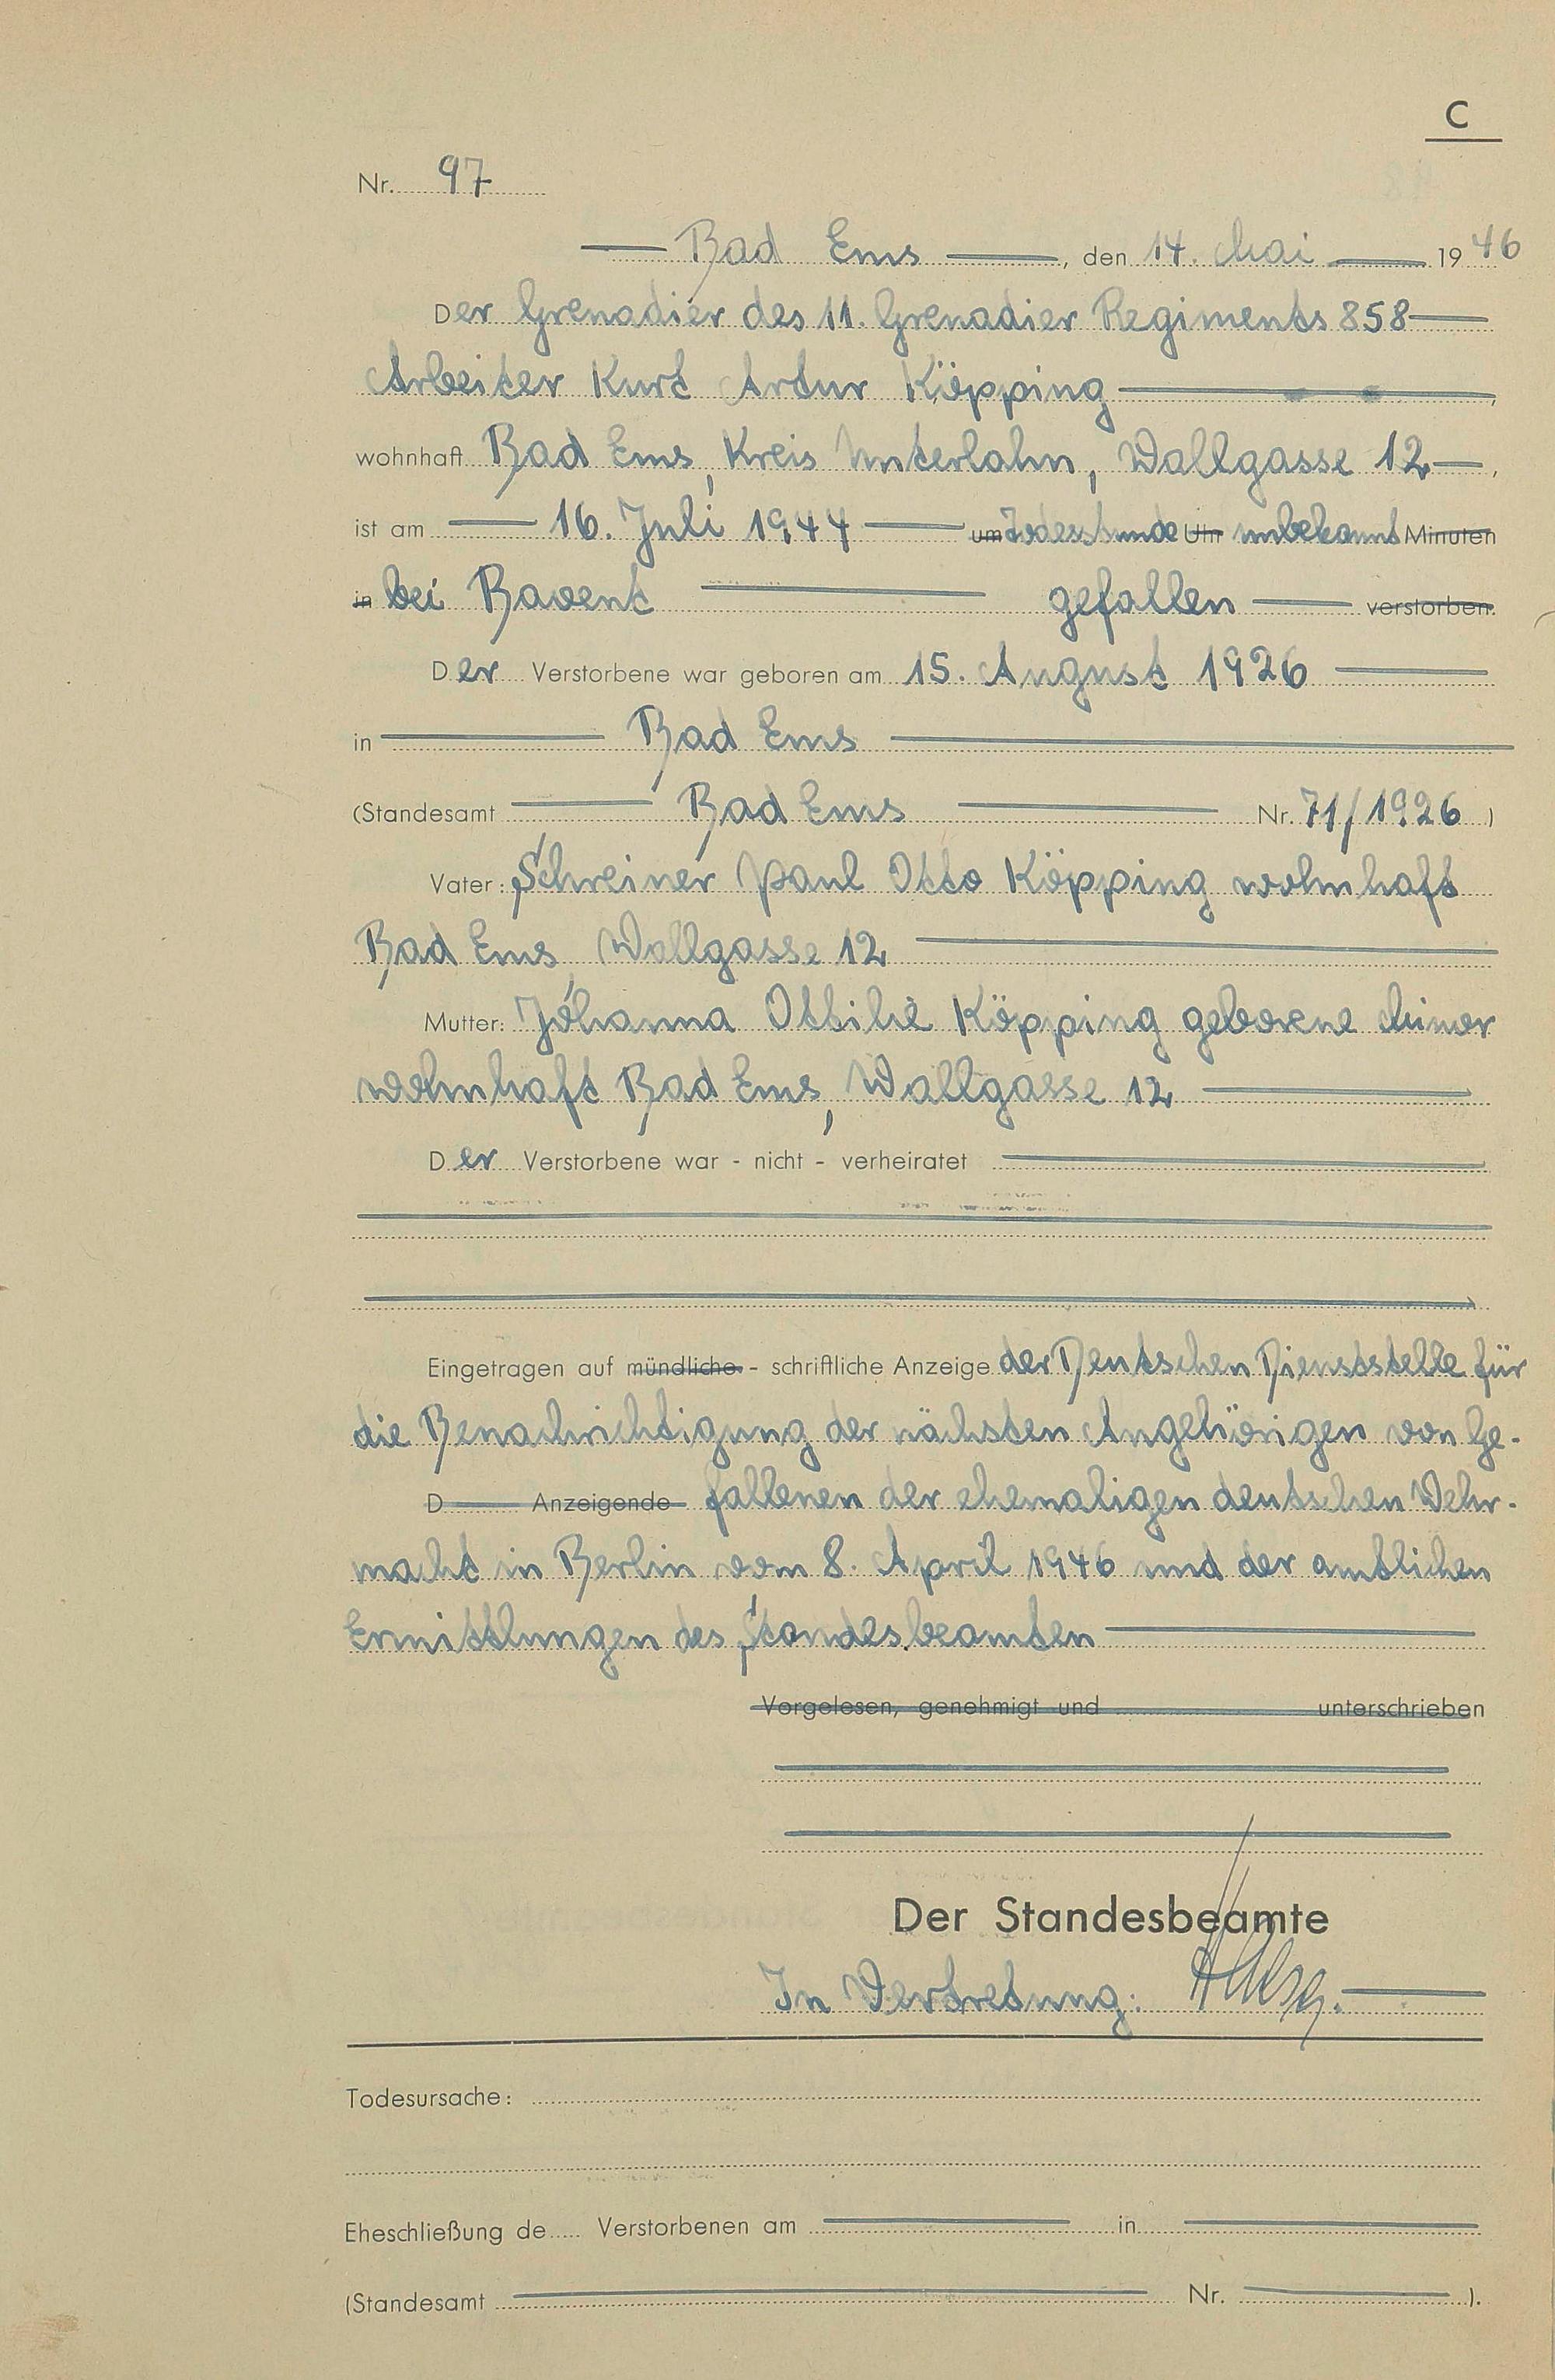 C
Nr. 97
Bad Ems, den 14. Mai 1946
Der Grenadier des 11. Grenadier Regiments 858
Arbeiter Kurt Artur Köpping,
wohnhaft Bad Ems, Kreis Unterlahn, Wallgasse 12,
ist am 16. Juli 1944 um Todesstunde Uhr unbekannt Minuten
in bei Bavent gefallen verstorben.
Der Verstorbene war geboren am 15. August 1926
in Bad Ems
(Standesamt Bad Ems Nr. 71/1926)
Vater: Schreiner Paul Otto Köpping wohnhaft
Bad Ems, Wallgasse 12
Mutter: Johanna Ottilie Köpping geborene
wohnhaft Bad Ems, Wallgasse 12
Der Verstorbene war - nicht - verheiratet
Eingetragen auf mündliche - schriftliche Anzeige der Deutschen Dienststelle für
die Benachrichtigung der nächsten Angehörigen von Ge-
D Anzeigende fallenen der ehemaligen deutschen Wehr-
macht in Berlin vom 8. April 1946 und der amtlichen
Ermittlungen des Standesbeamten
Vorgelesen, genehmigt und unterschrieben
Der Standesbeamte
In Vertretung:
Todesursache:
Eheschließung de Verstorbenen am in
(Standesamt Nr. ).